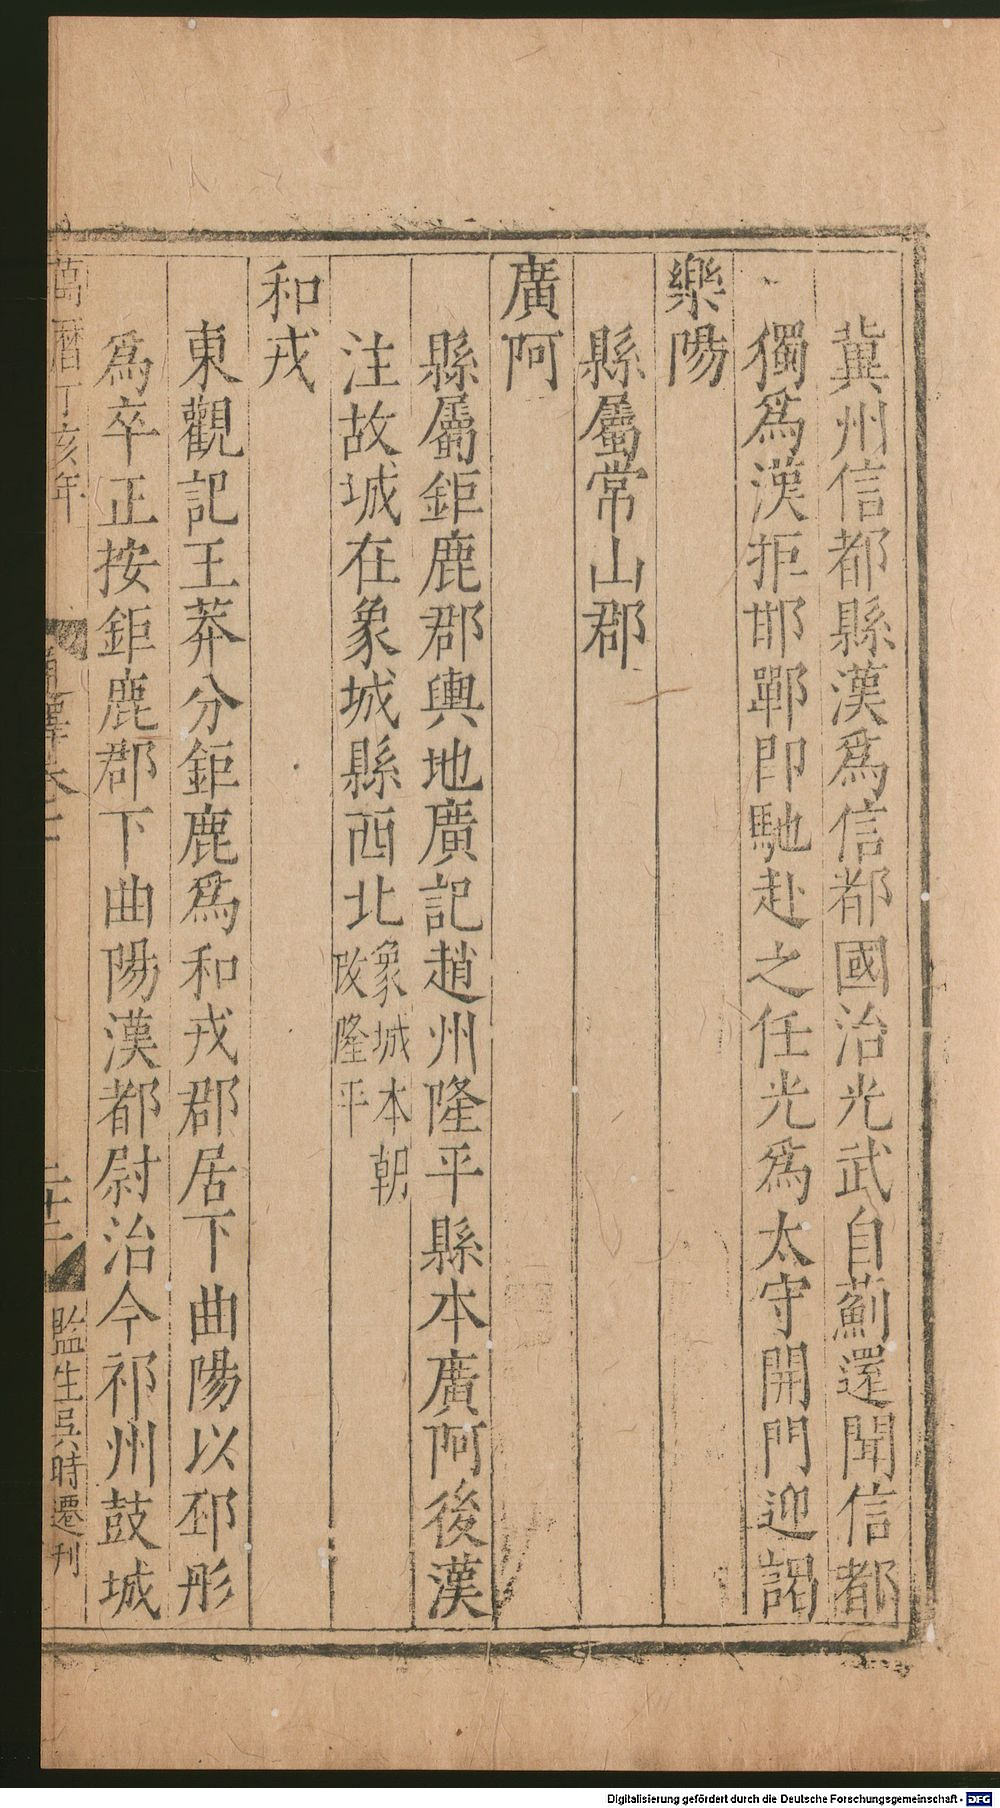 冀州信都縣漢爲信都國治光武自薊還聞信都
獨爲漢拒邯鄲即馳赴之任光爲太守開門迎謁
樂陽
縣屬常山郡
廣阿
縣屬鉅鹿郡輿地廣記趙州隆平縣本廣阿後漢
注故城在象城縣西北象城本朝
改隆平
和戎
東觀記王莽分鉅鹿爲和戎郡居下曲陽以邳彤
爲卒正按鉅鹿郡下曲陽漢都尉治今祁州鼓城
萬曆丁亥年
二十二
監生吳時遷刊
Digitalisierung gefördert durch die Deutsche Forschungsgemeinschaft - DFG